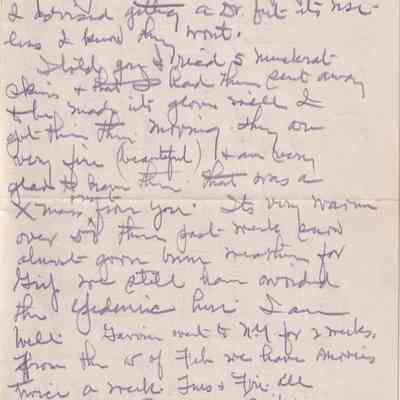 I advised getting a Dr. but its use-
less I know they wont.
I told you I rec'd 5 muskrat
skins & that I had them sent away
& by made its gloves well I
got them this morning they are
very fine (beautiful) & am very
glad to have them that was a
X mas from you. Its very warm
over 50 this past week snow
almost gone bum weather for
Grip we still have avoided
the epidemic here I am
well. went to N.Y for 2 weeks.
From the 15 of Feb we have movies
twice a week Tues & Fri.